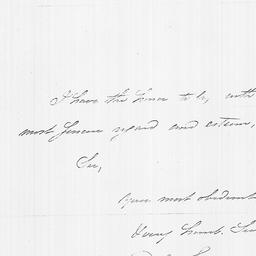 I have the honor to be, with
most sincere regard and esteem,
Sir,
Your most obedient
& very humb. Ser